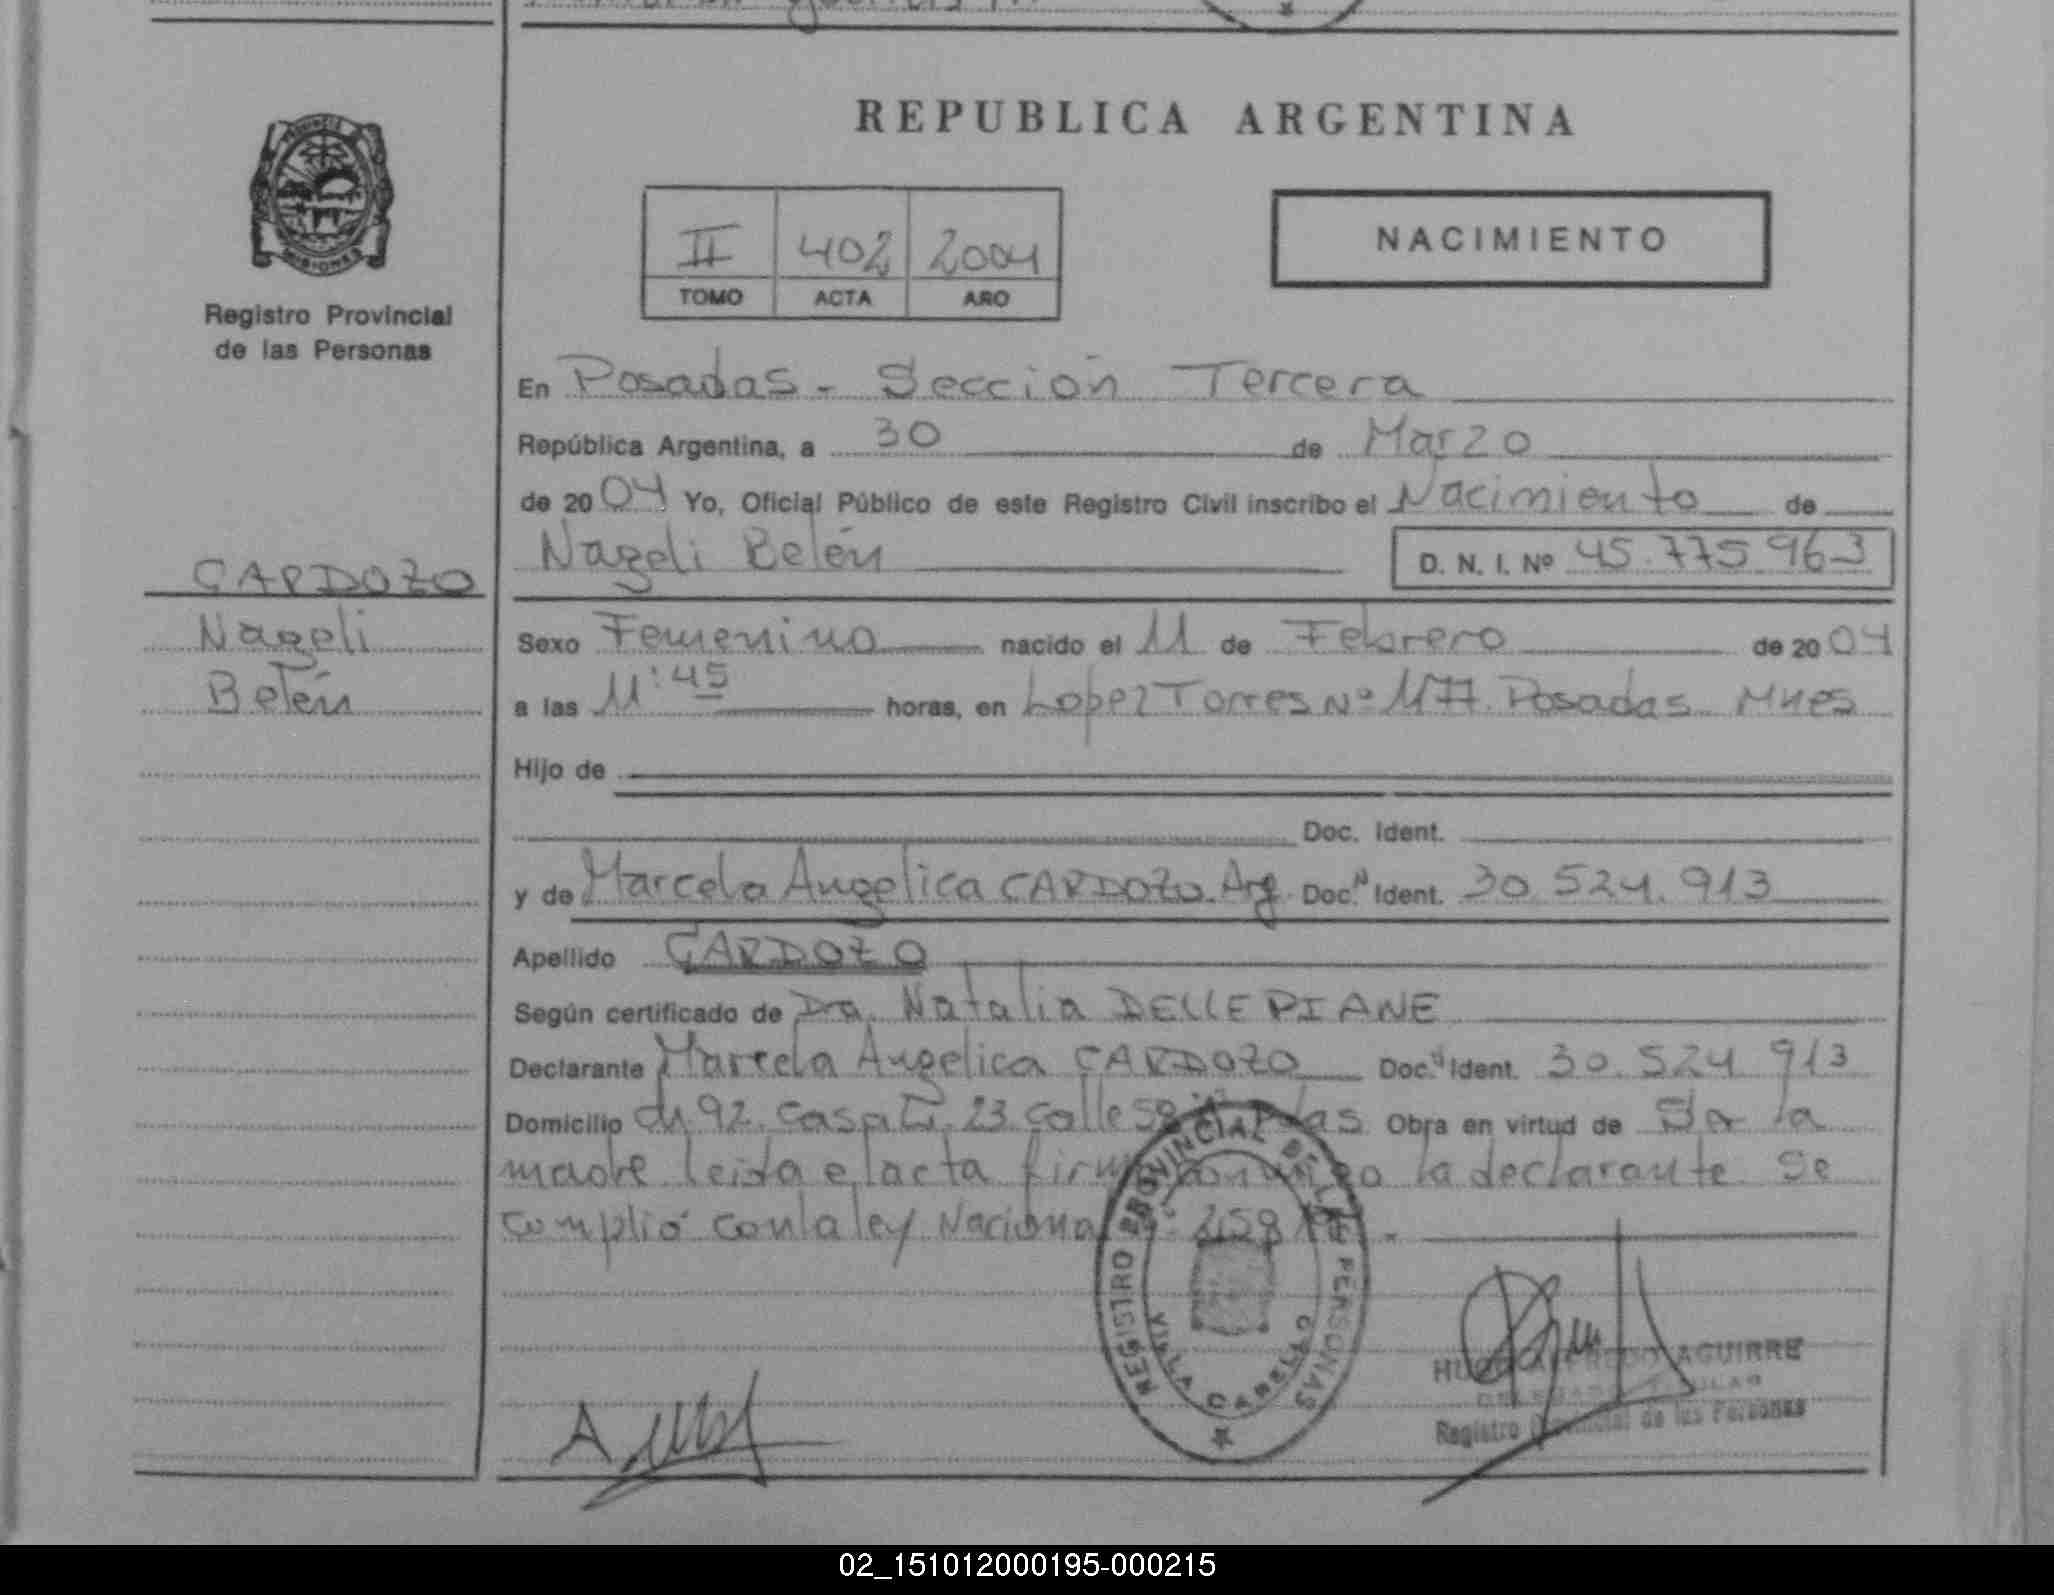 REPUBLICA ARGENTINA
PROVINCIA
MISIONES
Registro Provincial
de las Personas
II 402 2004
TOMO ACTA AÑO
NACIMIENTO
CARDOZO
Nageli
Belén
En Posadas - Sección Tercera
República Argentina, a 30 de Marzo
de 2004 Yo, Oficial Público de este Registro Civil inscribo el Nacimiento de
Nageli Belén D. N. I. Nº 45.775.963
Sexo Femenino nacido el 11 de Febrero de 2004
a las 11:45 horas, en Lopez Torres Nº 1177. Posadas Mnes
Hijo de
Doc. Ident.
y de Marcela Angelica CARDOZO. Arg. Doc. N Ident. 30.524.913
Apellido CARDOZO
Según certificado de Dra. Natalia DELLEPIANE
Declarante Marcela Angelica CARDOZO Doc. Ident. 30.524.913
Domicilio ch 92. Casa 23. Calle Obra en virtud de Ser la
madre leida el acta la declarante. Se
cumplió con la ley Nacional
REGISTRO PROVINCIAL DE LAS PERSONAS
VILLA CABELLO
HUGO ALFREDO AGUIRRE
DELEGADO TITULAR
Registro Provincial de las Personas
02_151012000195-000215